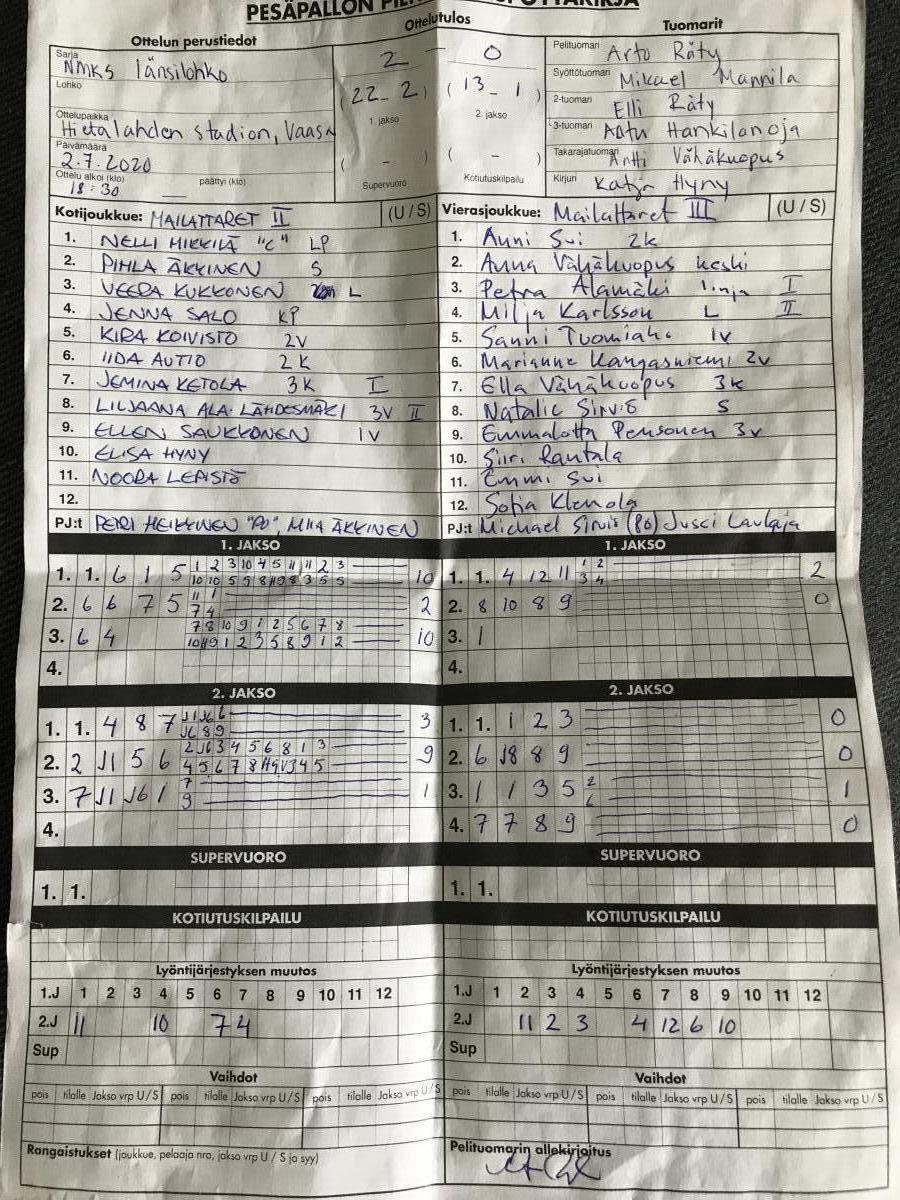 PESÄPALLON
Ottelun perustiedot
Ottelutulos
Tuomarit
Sarja NMKS länsilohko
Lohko
Ottelupaikka Hietalahden stadion, Vaasa
Päivämäärä 2.7.2020
Ottelu alkoi (klo) 18:30 päättyi (klo)
2 - 0
(22 - 2) (13 - 1)
1. jakso 2. jakso
( - ) ( - )
Supervuoro Kotiutuskilpailu
Pelituomari Arto Räty
Syöttötuomari Mikael Mannila
2-tuomari Elli Räty
3-tuomari Hankilanoja
Takarajatuomari Antti Vähäkuopus
Kirjuri Katja Hyny
Kotijoukkue: MAILATTARET II (U / S)
1. NELLI HIKKILÄ "C" LP
2. PIHLA ÄKKINEN S
3. VEERA KUKKONEN L
4. JENNA SALO KP
5. KIRA KOIVISTO 2V
6. IIDA AUTIO 2K
7. JEMINA KETOLA 3K I
8. LILJAANA ALA-LÄHDESMÄKI 3V II
9. ELLEN SAUKKONEN 1V
10. ELISA HYNY
11. NOORA LEPISTÖ
12.
PJ:t PETRI HEIKKINEN "PO" MIIA ÄKKINEN
Vierasjoukkue: Mailattaret III (U / S)
1. Anni Sui 2k
2. Anna Vähäkuopus keski
3. Petra Alamäki linja I
4. Milja Karlsson L II
5. Sanni Tuomiaho 1v
6. Marianne Kangasniemi 2v
7. Ella Vähäkuopus 3k
8. Natalie Sirviö S
9. Emmalotta Pensonen 3v
10. Siiri Rantala
11. Emmi Sui
12. Sofia Klemola
PJ:t Michael Sirviö
1. JAKSO
1. 1. 6 1 5 1 2 3 10 4 5 11 11 2 3 10
2. 6 6 7 5 11 1 2
7 4
3. 6 4 7 8 10 9 1 2 5 6 7 8 10
4.
1. JAKSO
1. 1. 4 12 11 1 2 2
3 4
2. 8 10 8 9 0
3. 1
4.
2. JAKSO
1. 1. 4 8 7 3
2. 2 J1 5 6 2 J6 3 4 5 6 8 1 3 9
3. 7 J1 J6 1 7 1
9
4.
2. JAKSO
1. 1. 1 2 3 0
2. 6 J8 8 9 0
3. 1 1 3 5 2 1
6
4. 7 7 8 9 0
SUPERVUORO
1. 1.
SUPERVUORO
1. 1.
KOTIUTUSKILPAILU
KOTIUTUSKILPAILU
Lyöntijärjestyksen muutos
1.J 1 2 3 4 5 6 7 8 9 10 11 12
2.J 11 10 7 4
Sup
Lyöntijärjestyksen muutos
1.J 1 2 3 4 5 6 7 8 9 10 11 12
2.J 11 2 3 4 12 6 10
Sup
Vaihdot
pois tilalle Jakso vrp U / S pois tilalle Jakso vrp U / S pois tilalle Jakso vrp U / S
Vaihdot
pois tilalle Jakso vrp U / S pois tilalle Jakso vrp U / S pois tilalle Jakso vrp U / S
Rangaistukset (joukkue, pelaaja nro, jakso vrp U / S ja syy)
Pelituomarin allekirjoitus